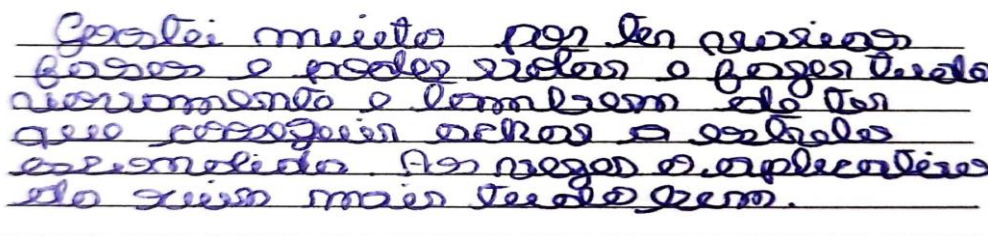 Gostei muito por ter varias
fases e poder voltar e fazer tudo
novamente e tambem de ter
que conseguir achar a estrela
escondida. As vezes o aplicativo
da ruim mais tudo bem.